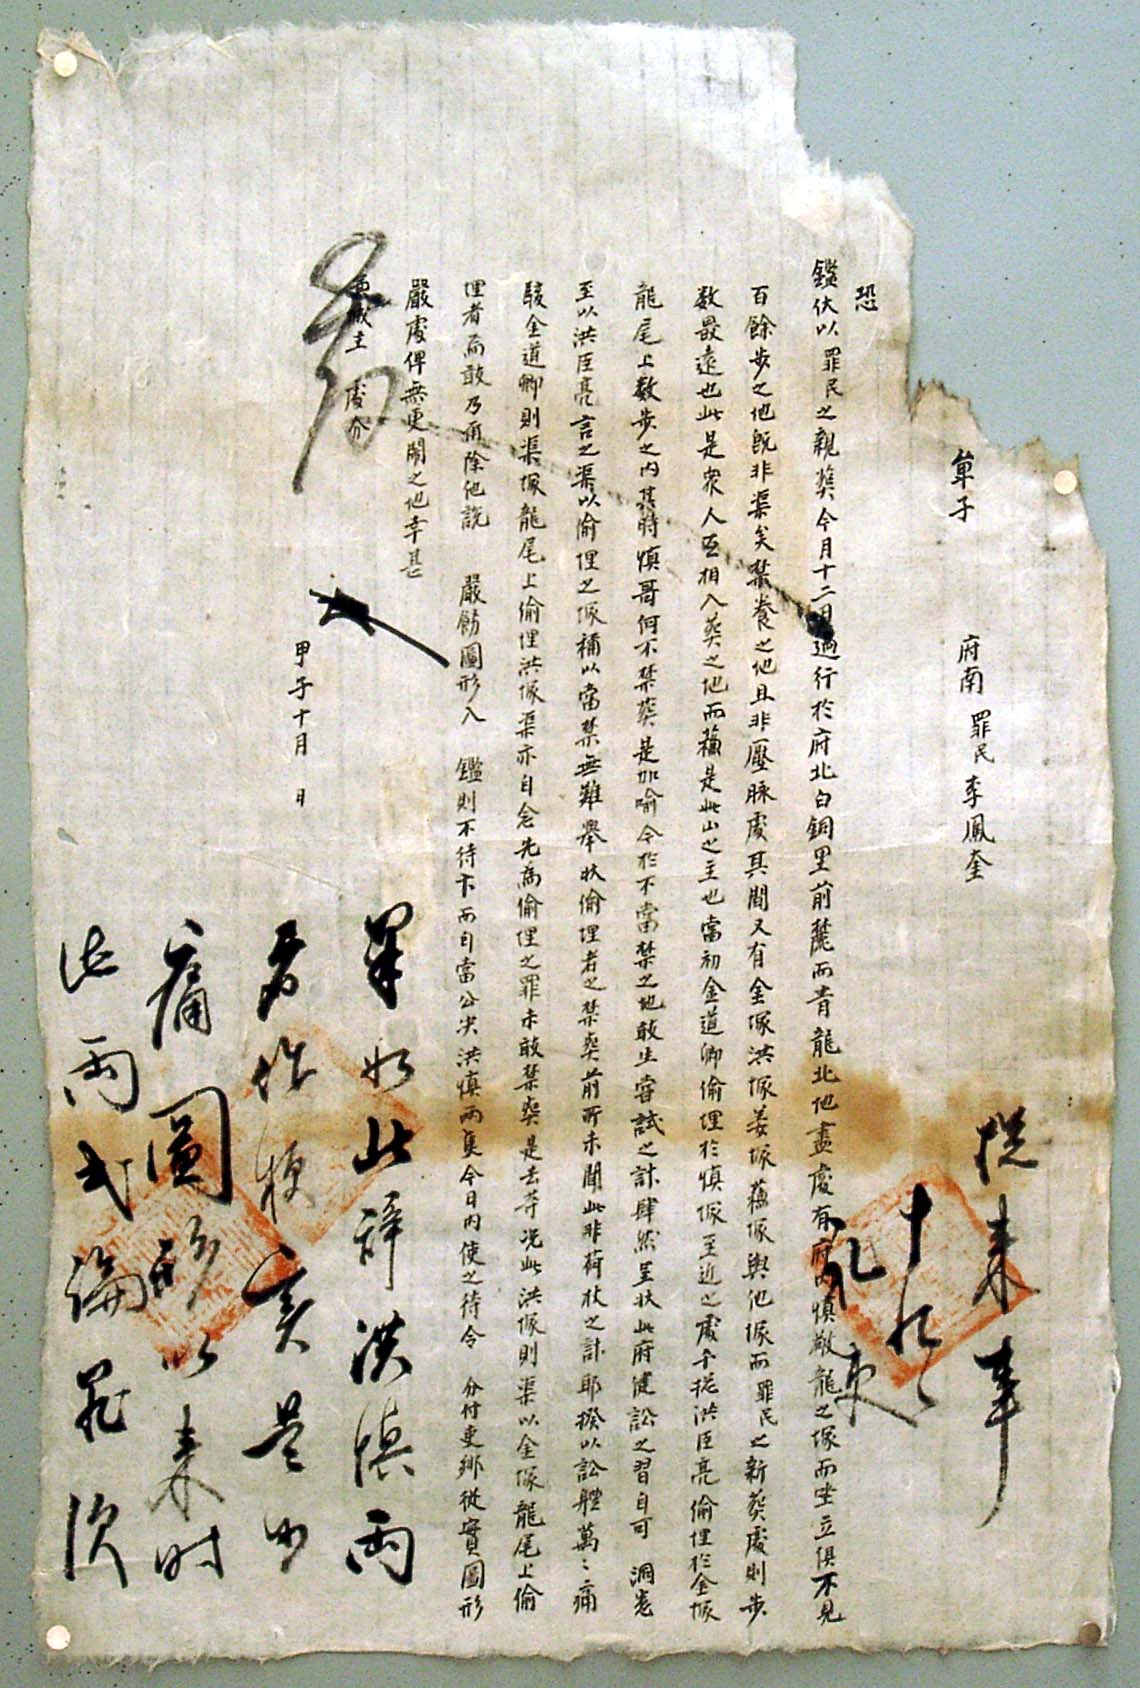 單子 府南 罪民 李鳳奎
恐
鑑伏以罪民之親葬今月十二日過行於府北白銅里前麓而青龍北他盡處有府內慎敬龍之塚而坐立俱不見
百餘步之地旣非渠矣禁養之地且非壓脉處其間又有金塚洪塚姜塚蘓塚與他塚而罪民之新葬處則步
数最遠也此是衆人互相入葬之地而蘓是此山之主也當初金道卿偷埋於慎塚至近之處千從洪臣亮偷埋於金塚
龍尾上数步之內其時慎哥何不禁葬是加喻今於不當禁之地敢生嘗試之計肆然呈狀此府健訟之習自可 洞悉
至以洪臣亮言之渠以偷埋之塚補以當禁無難擧狀偷埋者之禁葬前所未聞此非荷杖之計耶揆以訟體萬〻痛
駭金道卿則渠塚龍尾上偷埋洪塚渠亦自念先爲偷埋之罪未敢禁葬是去等况此洪塚則渠以金塚龍尾上偷
埋者焉敢乃爾除他說 嚴飭圖形入 鑑則不待卞而自當公决洪慎兩隻今日內使之待令 分付更鄕從實圖形
嚴處俾無更鬧之地幸甚
城主 處分
甲子十月 日
從來辛
十
果如此辞洪慎兩
圖形以來時
此兩